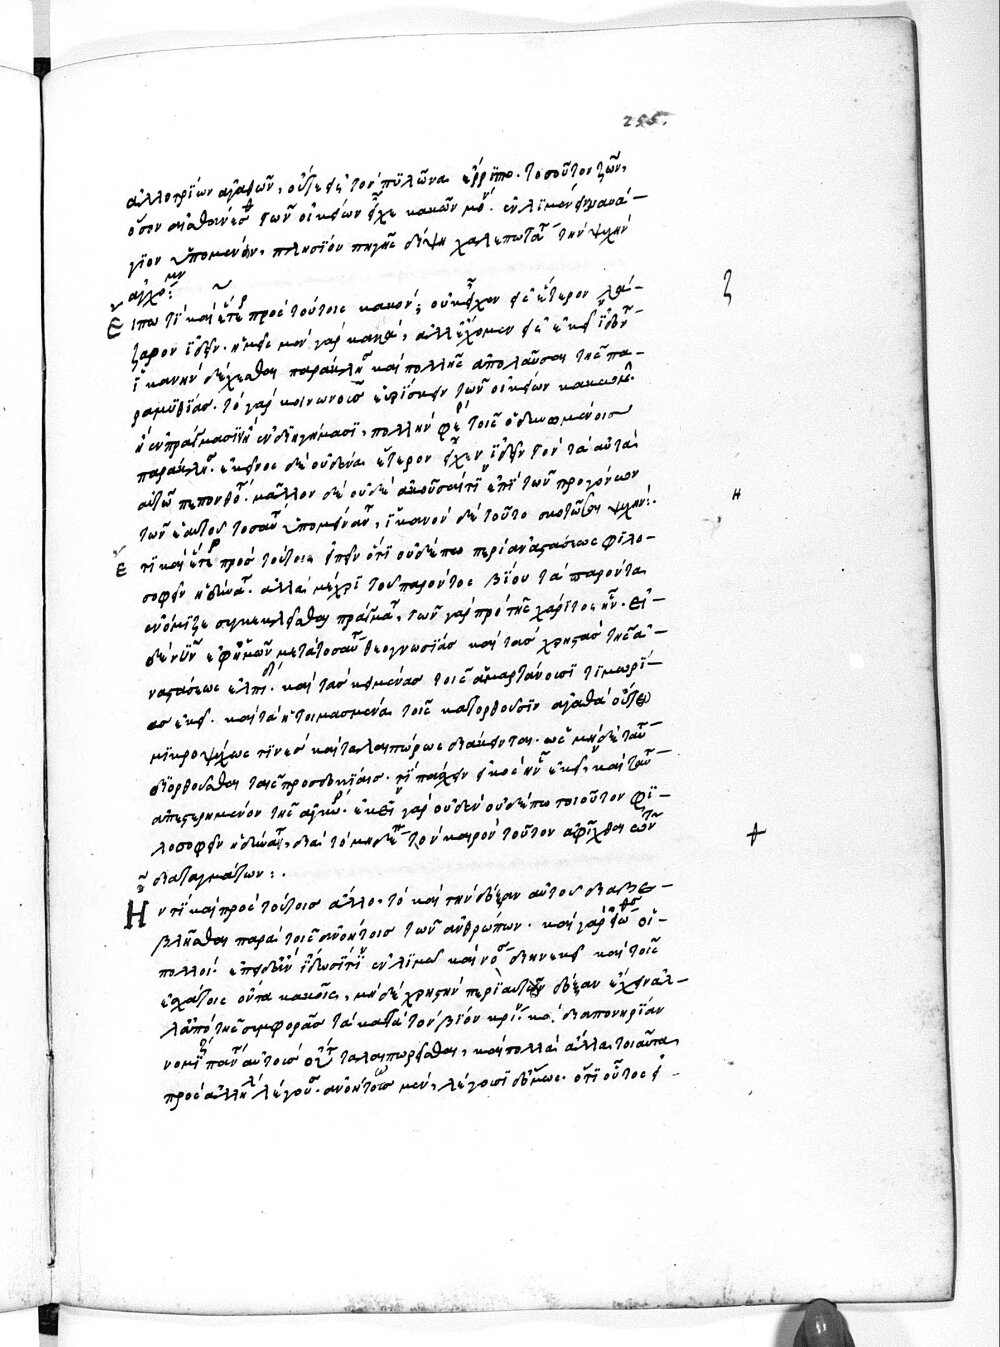 295.
ἀλλοτρίων ἀγαθῶν, οὗτος εἰς τὸν πυλῶνα ἔρριπτο. τοσοῦτον ζῶν,
ὅσον αἰσθάνεσθαι τῶν οἰκείων εἶχε κακῶν μόνον. ἐν λιμένι ναυά-
γιον ὑπομένων, πλησίον πηγῆς δίψη χαλεπωτάτη τὴν ψυχὴν
ἀγχόμην:
Εἴπω τι καὶ ἕτερον πρὸς τούτοις κακόν; οὐκ εἶχον εἰς ἕτερον Λά-
ζαρον ἰδεῖν. ἡμεῖς μὲν γὰρ κἂν, ἀλλ' ἔχομεν εἰς ἐκεῖνον ἰδόντες
ἱκανὴν δέχεσθαι παράκλησιν καὶ πολλῆς ἀπολαῦσαι τῆς πα-
ραμυθίας. τὸ γὰρ κοινωνοὺς εὑρίσκειν τῶν οἰκείων κακῶν
ἢ ἐν πράγμασιν ἢ ἐν διηγήμασι, πολλὴν φέρει τοῖς ὀδυνωμένοις
παράκλησιν. ἐκεῖνος δὲ οὐδένα ἕτερον εἶχεν ἰδεῖν τὸν τὰ αὐτὰ
αὐτῷ πεπονθότα. μᾶλλον δὲ οὐδὲ ἀκοῦσαί τινα ἐπὶ τῶν προγόνων
τῶν ἑαυτοῦ τοσαῦτα ὑπομείναντα, ἱκανὸν δὲ τοῦτο σκοτῶσαι ψυχήν:
Ἔτι καὶ ἕτερον πρὸς τούτοις εἰπεῖν ὅτι οὐδέπω περὶ ἀναστάσεως φιλο-
σοφεῖν ἠδύνατο. ἀλλὰ μέχρι τοῦ παρόντος βίου τὰ παρόντα
ἐνόμιζε συγκεκλεῖσθαι πράγματα, τῶν γὰρ πρὸ τῆς χάριτος ἦν. εἰ
δὲ νῦν ἐφ' ἡμῶν μετὰ τοσαύτην θεογνωσίας καὶ τὰς χρηστὰς τῆς ἀ-
ναστάσεως ἐλπίδας. καὶ τὰς κειμένας τοῖς ἁμαρτάνουσι τιμωρί-
ας ἐκεῖ. καὶ τὰ ἡτοιμασμένα τοῖς κατορθοῦσιν ἀγαθὰ οὕτω
μικροψύχως τινὲς καὶ ταλαιπώρως διάκεινται. ὡς μηδὲ ταύταις
διορθοῦσθαι ταῖς προσδοκίαις. τί παθεῖν εἰκὸς ἦν ἐκεῖνον, καὶ ταύτης
ἀπεστερημένον τῆς ἀγκύρας. ἐκεῖνος γὰρ οὐδὲν οὐδέπω τοιοῦτον φι-
λοσοφεῖν ἠδύνατο, διὰ τὸ μηδέπω τὸν καιρὸν τοῦτον ἀφῖχθαι τῶν
διαταγμάτων:.
Ἦν τι καὶ πρὸς τούτοις ἄλλο. τὸ καὶ τὴν δόξαν αὐτοῦ διαβε-
βλῆσθαι παρὰ τοῖς ἀνοήτοις τῶν ἀνθρώπων. καὶ γὰρ εἰώθασιν οἱ
πολλοί. ἐπειδὰν ἴδωσί τινα ἐν λιμῷ καὶ νόσῳ διηνεκεῖ καὶ τοῖς
ἐσχάτοις ὄντα κακοῖς, μηδὲ χρηστὴν περὶ αὐτῶν δόξαν ἔχειν ἀλ-
λ' ἀπὸ τῆς συμφορᾶς τὰ κατὰ τὸν βίον κρίνειν. καὶ διὰ πονηρίαν
νομίζειν πάντως αὐτοὺς οὕτω ταλαιπωρεῖσθαι, καὶ πολλὰ ἄλλα τοιαῦτα,
πρὸς ἀλλήλους λέγουσιν. ἀνοήτως μὲν, λέγουσι δ' ὅμως. ὅτι οὗτος εἰ -